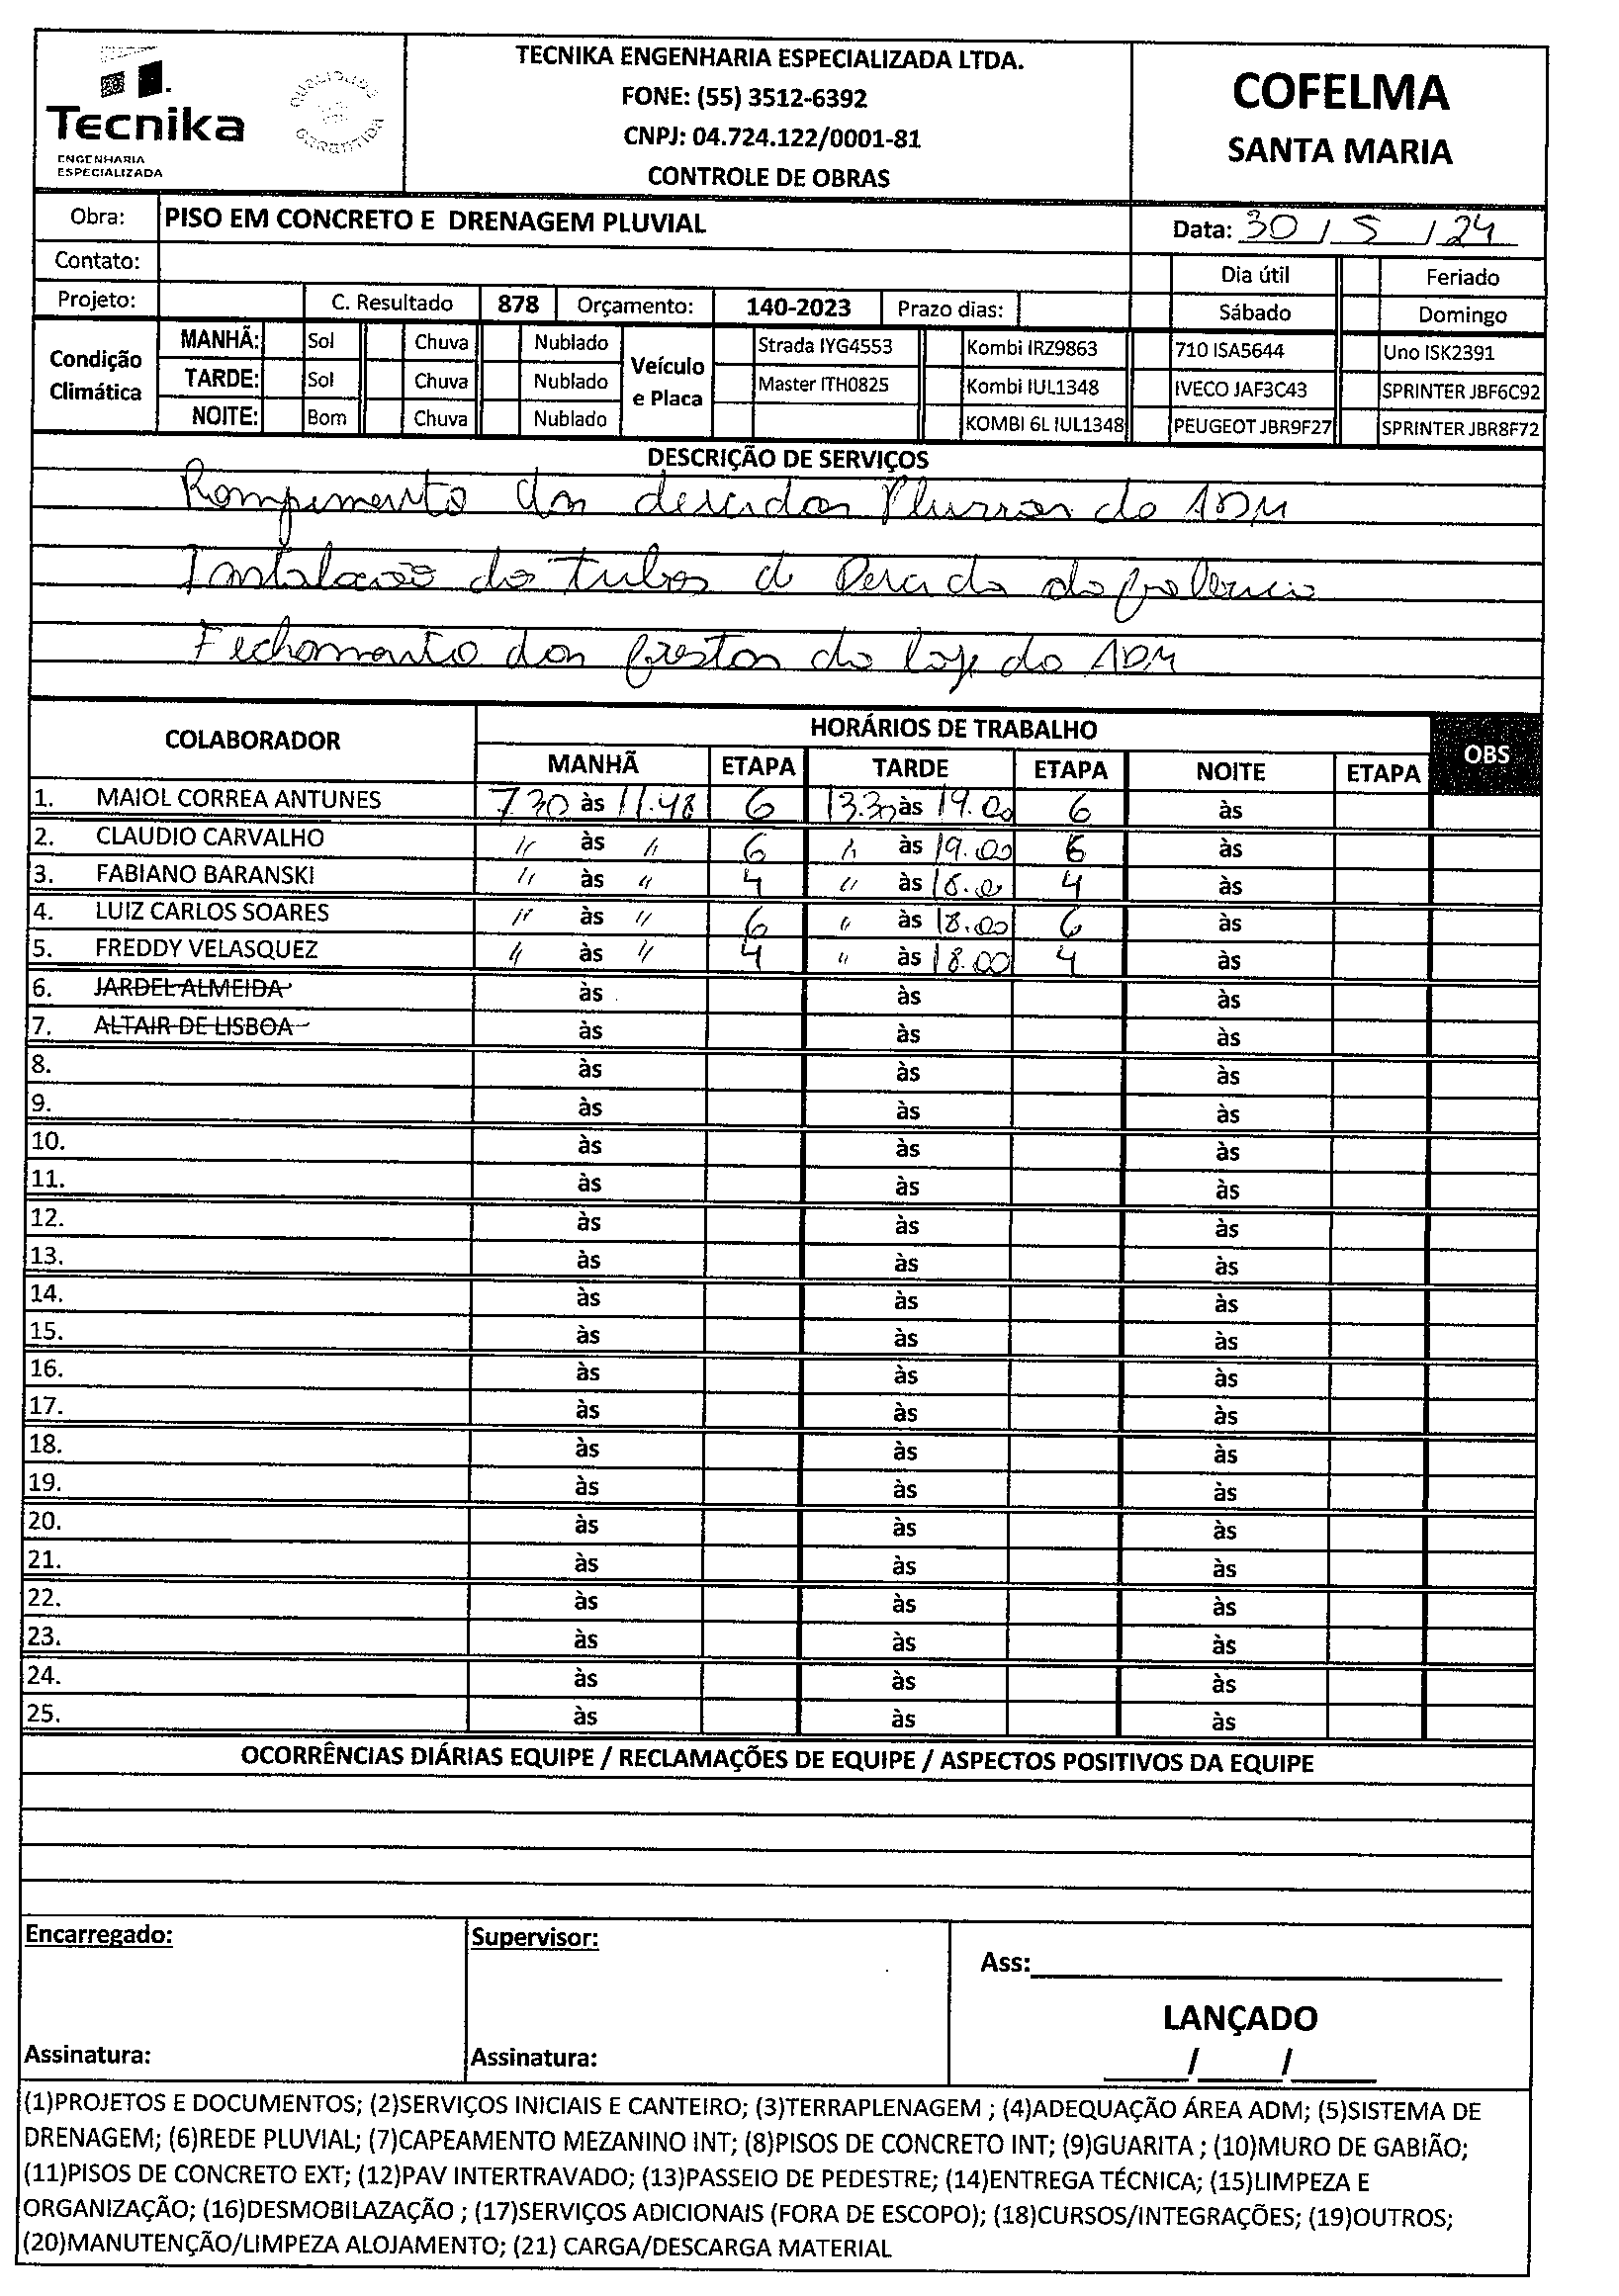 Tecnika
ENGENHARIA
ESPECIALIZADA
QUALIDADE
GARANTIDA
TECNIKA ENGENHARIA ESPECIALIZADA LTDA.
FONE: (55) 3512-6392
CNPJ: 04.724.122/0001-81
CONTROLE DE OBRAS
COFELMA
SANTA MARIA
Obra: PISO EM CONCRETO E DRENAGEM PLUVIAL Data: 30 / 5 / 24
Contato: Dia útil Feriado
Projeto: C. Resultado 878 Orçamento: 140-2023 Prazo dias: Sábado Domingo
Condição Climática
MANHÃ: Sol Chuva Nublado
TARDE: Sol Chuva Nublado
NOITE: Bom Chuva Nublado
Veículo e Placa
Strada IYG4553 Kombi IRZ9863 710 ISA5644 Uno ISK2391
Master ITH0825 Kombi IUL1348 IVECO JAF3C43 SPRINTER JBF6C92
KOMBI 6L IUL1348 PEUGEOT JBR9F27 SPRINTER JBR8F72
DESCRIÇÃO DE SERVIÇOS
Rompimento das descidas Pluviais do ADM
Instalacao do tubos d
Fechamento das frestas da laje do ADM
COLABORADOR HORÁRIOS DE TRABALHO OBS
MANHÃ ETAPA TARDE ETAPA NOITE ETAPA
1. MAIOL CORREA ANTUNES 7.30 às 11.48 6 13.30 às 19.00 6 às
2. CLAUDIO CARVALHO " às " 6 " às 19.00 6 às
3. FABIANO BARANSKI " às " 4 " às 18.0 4 às
4. LUIZ CARLOS SOARES " às " 6 " às 18.00 6 às
5. FREDDY VELASQUEZ " às " 4 " às 18.00 4 às
6. JARDEL ALMEIDA às às às
7. ALTAIR DE LISBOA às às às
8. às às às
9. às às às
10. às às às
11. às às às
12. às às às
13. às às às
14. às às às
15. às às às
16. às às às
17. às às às
18. às às às
19. às às às
20. às às às
21. às às às
22. às às às
23. às às às
24. às às às
25. às às às
OCORRÊNCIAS DIÁRIAS EQUIPE / RECLAMAÇÕES DE EQUIPE / ASPECTOS POSITIVOS DA EQUIPE
Encarregado: Supervisor: Ass:
LANÇADO
Assinatura: Assinatura: / /
(1)PROJETOS E DOCUMENTOS; (2)SERVIÇOS INICIAIS E CANTEIRO; (3)TERRAPLENAGEM ; (4)ADEQUAÇÃO ÁREA ADM; (5)SISTEMA DE
DRENAGEM; (6)REDE PLUVIAL; (7)CAPEAMENTO MEZANINO INT; (8)PISOS DE CONCRETO INT; (9)GUARITA ; (10)MURO DE GABIÃO;
(11)PISOS DE CONCRETO EXT; (12)PAV INTERTRAVADO; (13)PASSEIO DE PEDESTRE; (14)ENTREGA TÉCNICA; (15)LIMPEZA E
ORGANIZAÇÃO; (16)DESMOBILAZAÇÃO ; (17)SERVIÇOS ADICIONAIS (FORA DE ESCOPO); (18)CURSOS/INTEGRAÇÕES; (19)OUTROS;
(20)MANUTENÇÃO/LIMPEZA ALOJAMENTO; (21) CARGA/DESCARGA MATERIAL